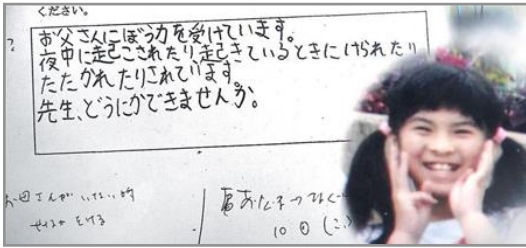 ください。
お父さんにぼう力を受けています。
夜中に起こされたり起きているときにけられたり
たたかれたりされています。
先生、どうにかできませんか。
お父さんがいない時